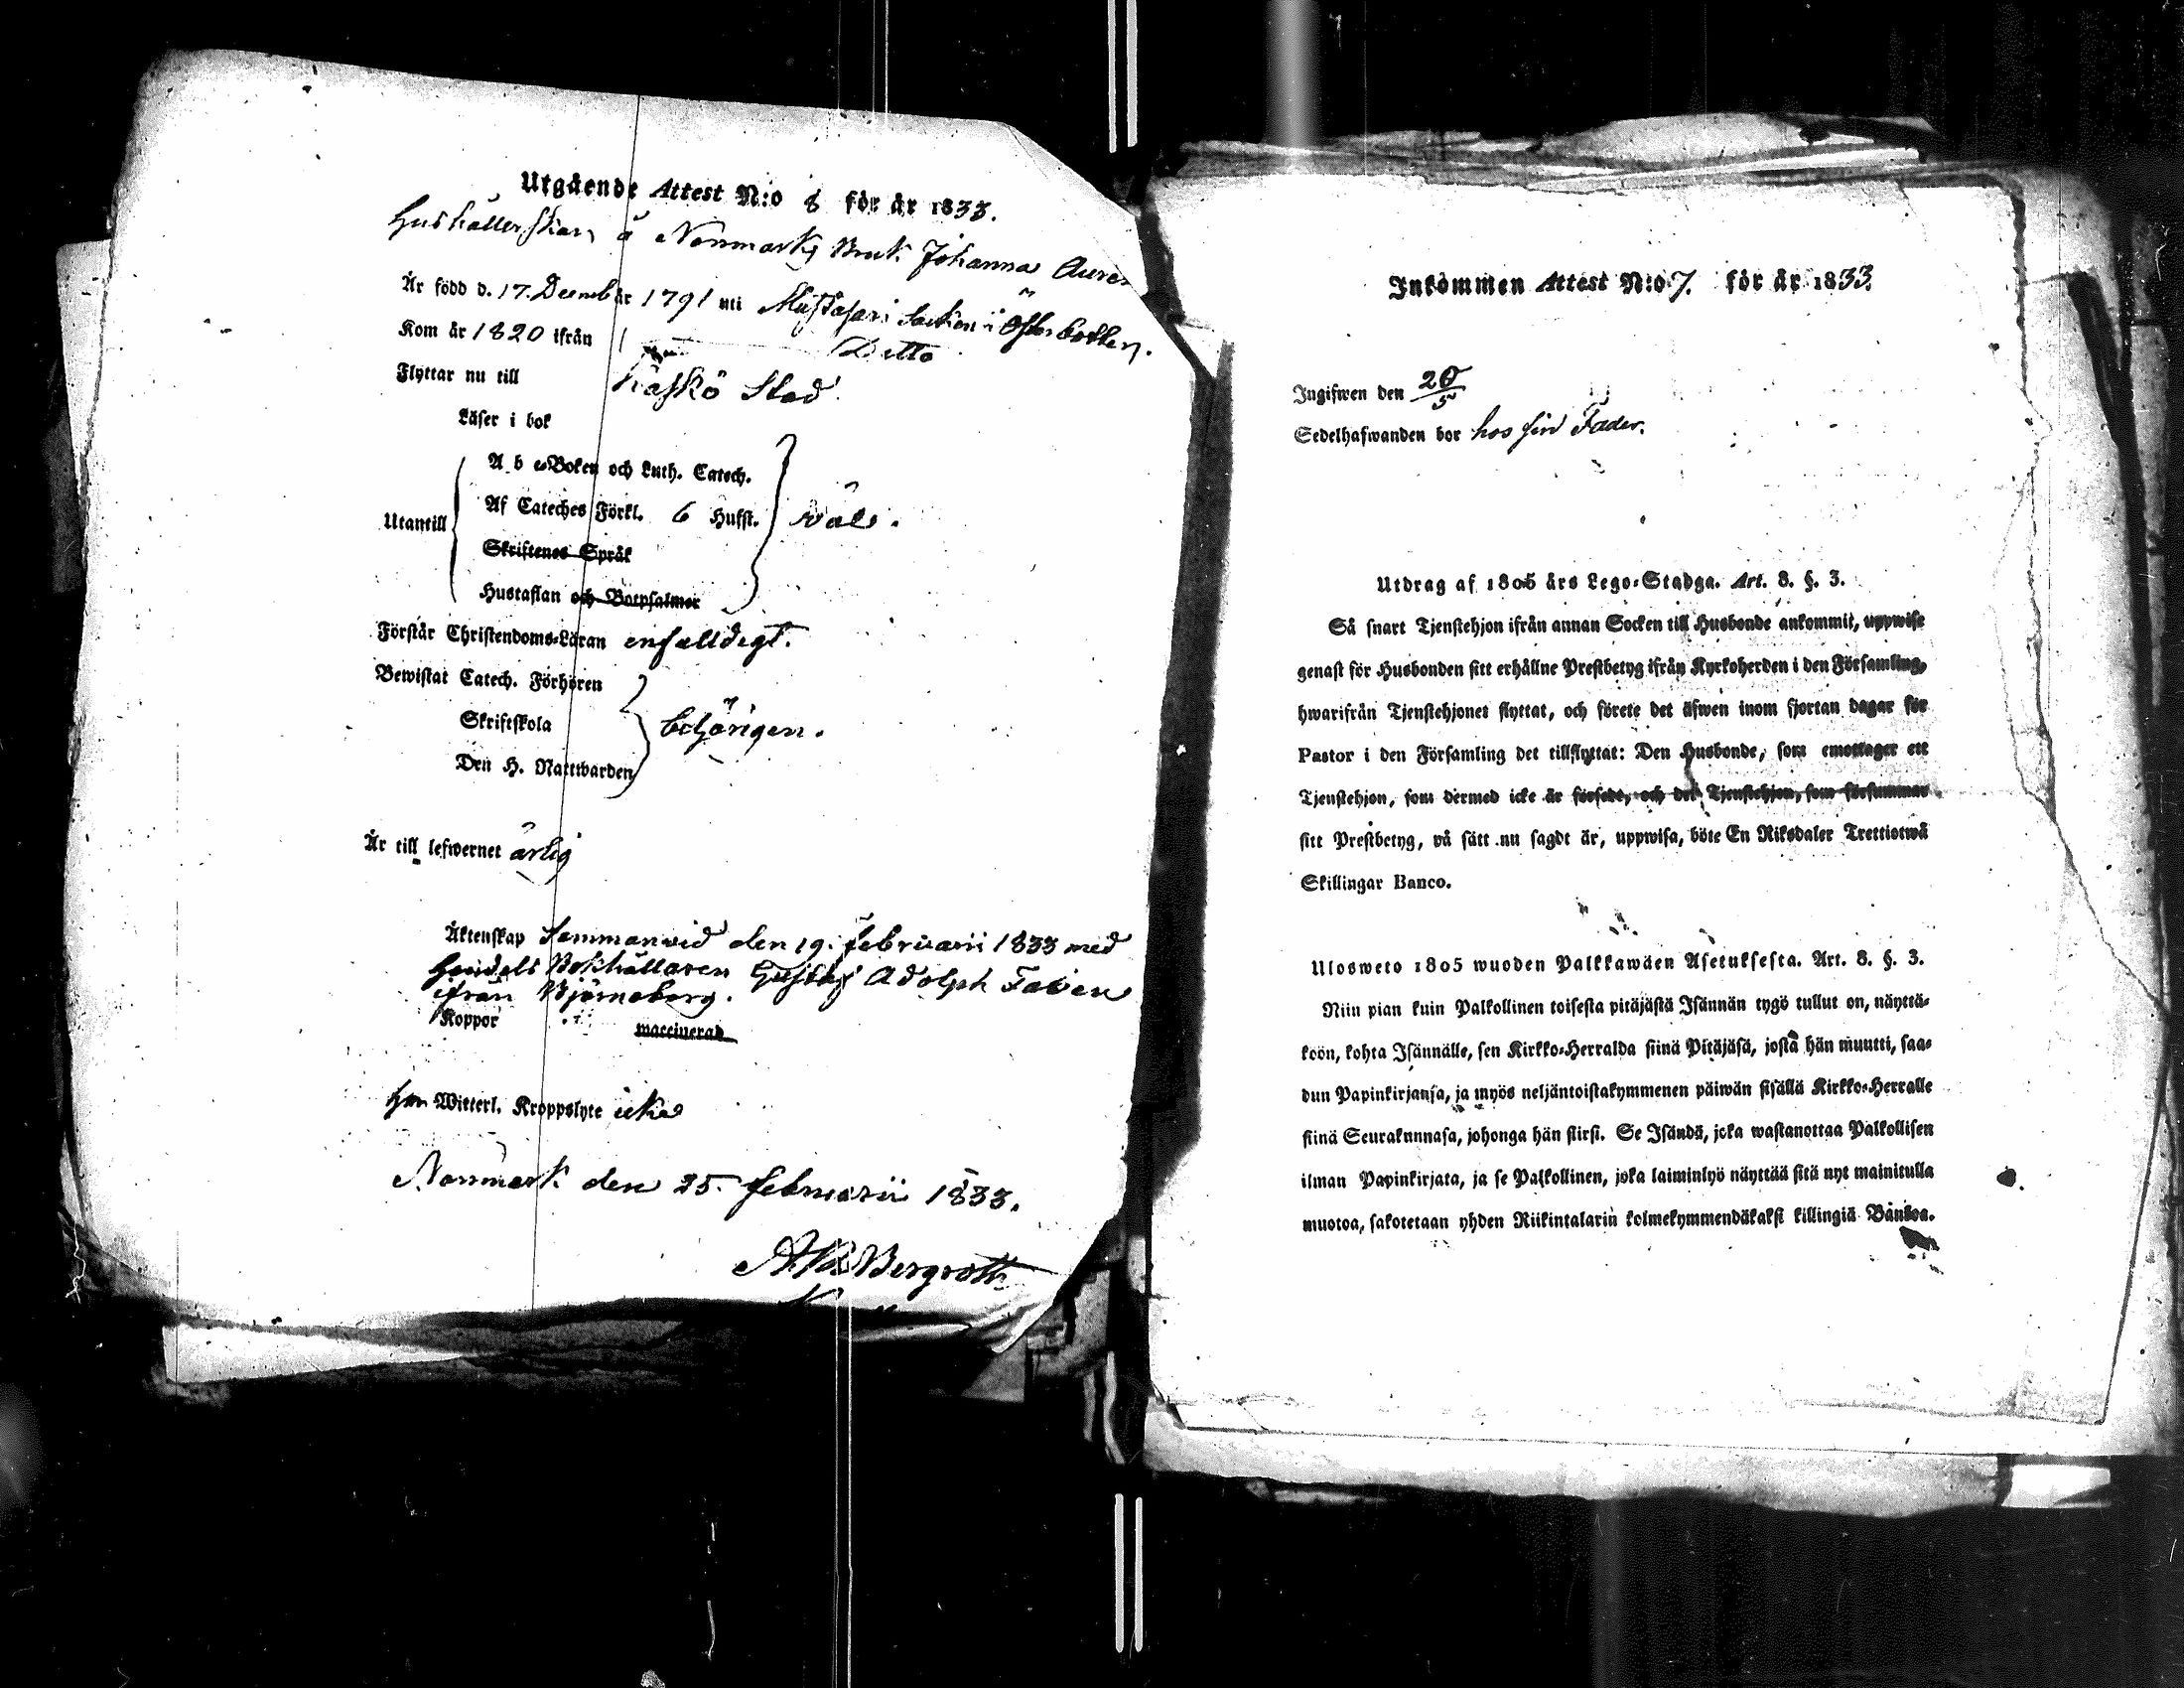 Utgående Attest N:o 8 för år 1833.
Hushållerskan å Norrmarks Bruk Johanna
Är född d. 17. December 1791 uti Mustasari Socken i Österbotten.
Kom år 1820 ifrån Ditto
Flyttar nu till Kaskö Stad
Läser i bok
A b c-Boken och Luth. Catech.
Utantill Af Cateches Förkl. 6 Hufst. väl.
Skriftenes Språk
Hustaflan och Botpsalmer
Förstår Christendoms-Läran enfaldigt.
Bewistat Catech. Förhören
Skriftskola behörigen.
Den H. Nattwarden
Är till lefwernet ärlig
Äktenskap Sammanvid den 19. Februarii 1833 med
Handels Bokhållaren Gustaf Adolph
ifrån Björneborg.
Koppor waccinerad
Har Witterl. Kroppslyte icke
Norrmark den 25. Februarii 1833.
Bergroth
Inkommen Attest N:o 7. för år 1833.
Ingifwen den 20/5
Sedelhafwanden bor hos sin Fader.
Utdrag af 1805 års Lego-Stadga. Art. 8. §. 3.
Så snart Tjenstehjon ifrån annan Socken till Husbonde ankommit, uppwise
genast för Husbonden sitt erhållne Prestbetyg ifrån Kyrkoherden i den Församling,
hwarifrån Tjenstehjonet flyttat, och förete det äfwen inom fjortan dagar för
Pastor i den Församling det tillflyttat: Den Husbonde, som emottager ett
Tjenstehjon, som dermed icke är försedt, och det Tjenstehjon, som försummar
sitt Prestbetyg, på sätt nu sagdt är, uppwisa, böte En Riksdaler Trettiotwå
Skillingar Banco.
Ulosweto 1805 wuoden Palkkawäen Asetuksesta. Art. 8. §. 3.
Niin pian kuin Palkollinen toisesta pitäjästä Isännän tygö tullut on, näyttä-
köön, kohta Isännälle, sen Kirkko-Herralda siinä Pitäjäsä, josta hän muutti, saa-
dun Papinkirjansa, ja myös neljäntoistakymmenen päiwän sisällä Kirkko-Herralle
siinä Seurakunnasa, johonga hän siirsi. Se Isändä, joka wastanottaa Palkollisen
ilman Papinkirjata, ja se Palkollinen, joka laiminlyö näyttää sitä nyt mainitulla
muotoa, sakotetaan yhden Riikintalarin kolmekymmendäkaksi killingiä Bankoa.